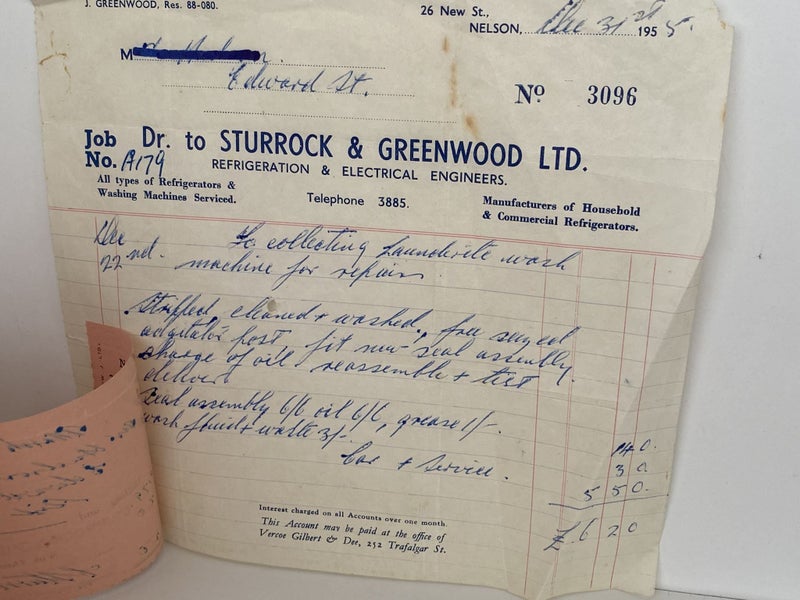 J. GREENWOOD, Res. 88-080.
26 New St.,
NELSON, Dec 31st 1955.
M
Edward St.
No 3096
Job No. A179
Dr. to STURROCK & GREENWOOD LTD.
REFRIGERATION & ELECTRICAL ENGINEERS.
All types of Refrigerators &
Washing Machines Serviced.
Telephone 3885.
Manufacturers of Household
& Commercial Refrigerators.
Dec 22nd. To collecting Launderite wash
machine for repairs.
Stripped, cleaned + washed, free seized
agitator post, fit new seal assembly
charge of oil reassemble + test
deliver
Seal assembly 6/6 oil 6/6, grease 1/-.
wash fluid + waste 3/-. 14 0.
Car + Service. 3 0.
5 5 0.
£ 6 2 0
Interest charged on all Accounts over one month.
This Account may be paid at the office of
Vercoe Gilbert & Dee, 252 Trafalgar St.